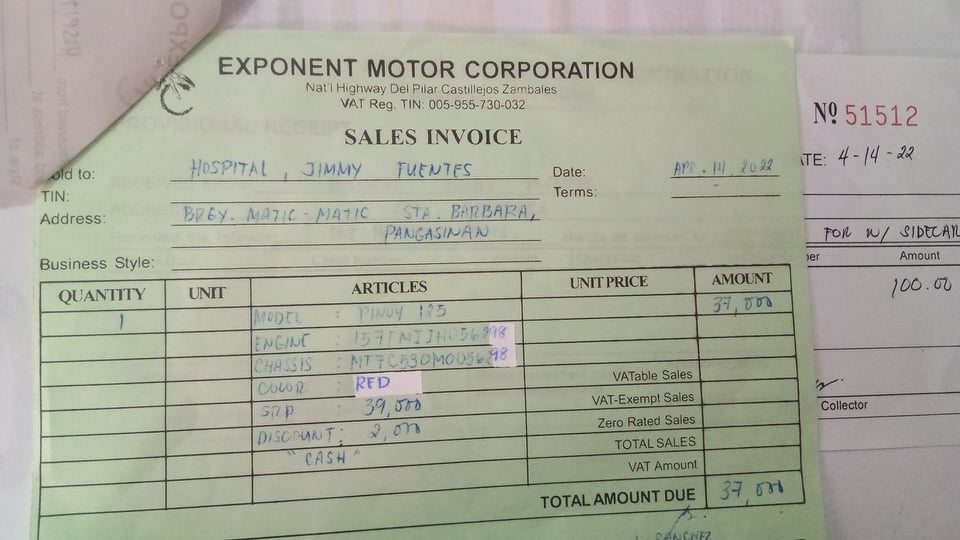 EXPONENT MOTOR CORPORATION
Nat'l Highway Del Pilar Castillejos Zambales
VAT Reg. TIN: 005-955-730-032
SALES INVOICE
old to: HOSPITAL, JIMMY FUENTES
Date: APR. 14, 2022
TIN:
Terms: -
Address: BRGY. MATIC-MATIC STA. BARBARA,
PANGASINAN
Business Style:
QUANTITY UNIT ARTICLES UNIT PRICE AMOUNT
1 MODEL : PINOY 125 37,000
ENGINE : 157FMIJH056898
CHASSIS : MT7C53DM0056298
COLOR : RED
SRP : 39,000
DISCOUNT: 2,000
"CASH"
VATable Sales
VAT-Exempt Sales
Zero Rated Sales
TOTAL SALES
VAT Amount
TOTAL AMOUNT DUE 37,000
SANCHEZ
Nº 51512
ATE: 4-14-22
FOR W/ SIDECAR
ber Amount
100.00
Collector